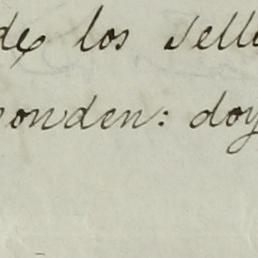 de los selle
onden: doy